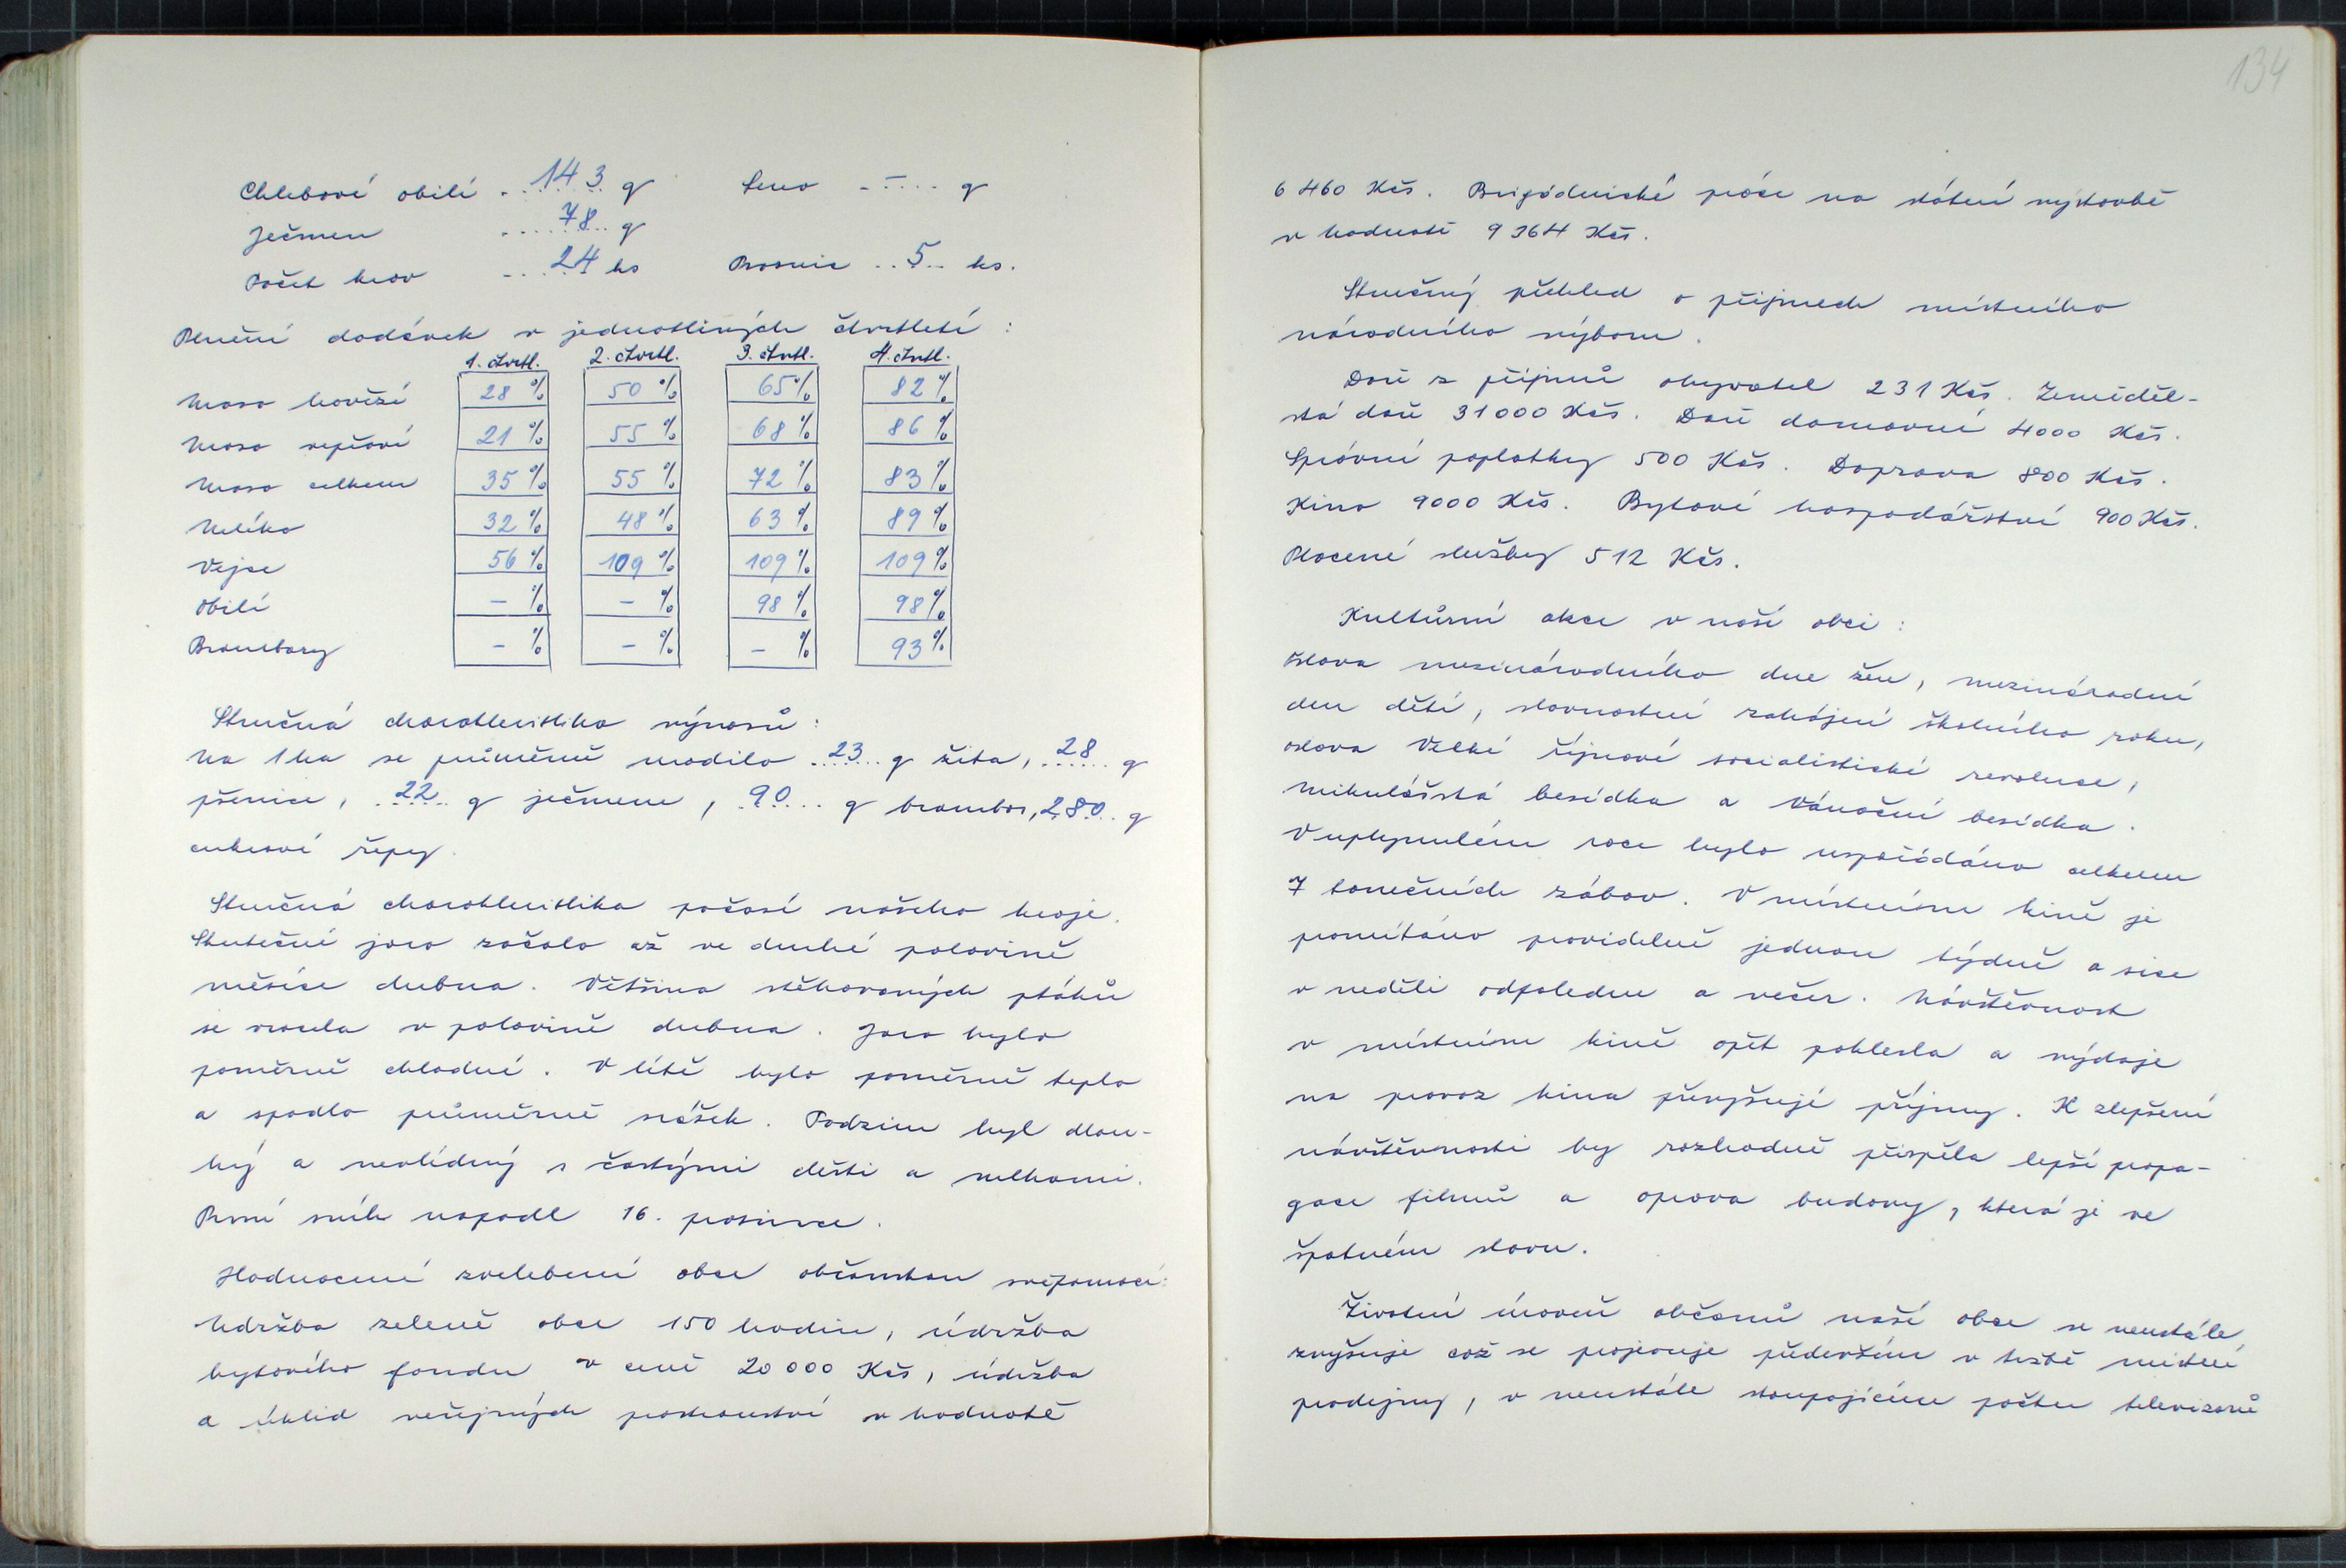 Chlebové obilí . . 143 . . q Seno - - . . . q
Ječmen . . . 78 . . q
Počet krav . . . 24 ks Prasnic . . 5 . . ks.
Plnění dodávek v jednotlivých čtvrtletí :
1. čtvrtl. 2. čtvrtl. 3. čtvtl. 4. čtvtl.
Maso hovězí 28 % 50 % 65 % 82 %
Maso vepřové 21 % 55 % 68 % 86 %
Maso celkem 35 % 55 % 72 % 83 %
Mléko 32 % 48 % 63 % 89 %
Vejce 56 % 109 % 109 % 109 %
Obilí - % - % 98 % 98 %
Brambory - % - % - % 93 %
Stručná charakteristika výnosů :
Na 1 ha se průměrně urodilo . 23 . . q žita, . 28 . . q
pšenice, . 22 . . q ječmene, . 90 . . . q brambor, 280 . . q
cukrové řepy.
Stručná charakteristika počasí našeho kraje.
Skutečné jaro začalo až ve druhé polovině
měsíce dubna. Většina stěhovavých ptáků
se vrátila v polovině dubna. Jaro bylo
poměrně chladné. V létě bylo poměrně teplo
a spadlo průměrně srážek. Podzim byl dlou-
hý a nevlídný s častými dešti a mlhami.
První sníh napadl 16. prosince.
Hodnocení zvelebení obce občanskou svépomocí:
Údržba zeleně obce 150 hodin, údržba
bytového fondu v ceně 20 000 Kčs, údržba
a úklid veřejných prostranství v hodnotě
134
6 460 Kčs. Brigádnické práce na státní výstavbě
v hodnotě 9 364 Kčs.
Stručný přehled o příjmech místního
národního výboru.
Daň z příjmů obyvatel 231 Kčs. Zeměděl-
ská daň 31000 Kčs. Daň domovní 4000 Kčs.
Správní poplatky 500 Kčs. Doprava 800 Kčs.
Kino 9000 Kčs. Bytové hospodářství 900 Kčs.
Placené služby 512 Kčs.
Kultůrní akce v naší obci :
Oslava mezinárodního dne žen, mezinárodní
den dětí, slavnostní zahájení školního roku,
oslava Velké říjnové socialistické revoluce,
Mikulášská besídka a Vánoční besídka.
V uplynulém roce bylo uspořádáno celkem
7 tanečních zábav. V místním kině je
promítáno pravidelně jednou týdně a sice
v neděli odpoledne a večer. Návštěvnost
v místním kině opět poklesla a výdaje
na provoz kina převyšují příjmy. K zlepšení
návštěvnosti by rozhodně přispěla lepší propa-
gace filmů a oprava budovy, která je ve
špatném stavu.
Životní úroveň občanů naší obce se neustále
zvyšuje což se projevuje především v tržbě místní
prodejny, v neustále stoupajícím počtu televizorů